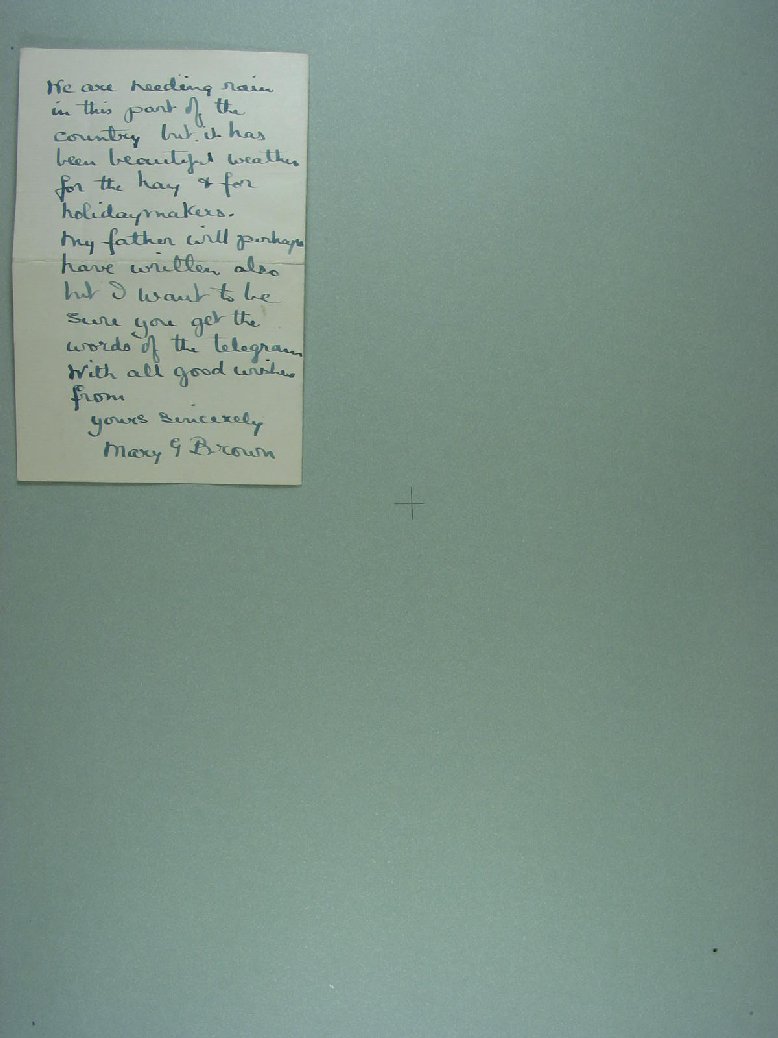 We are needing rain
in this part of the
country but it has
been beautiful weather
for the hay & for
holidaymakers.
My father will perhaps
have written also
but I want to be
sure you get the
words of the telegram
With all good wishes
from
yours sincerely
Mary G Brown